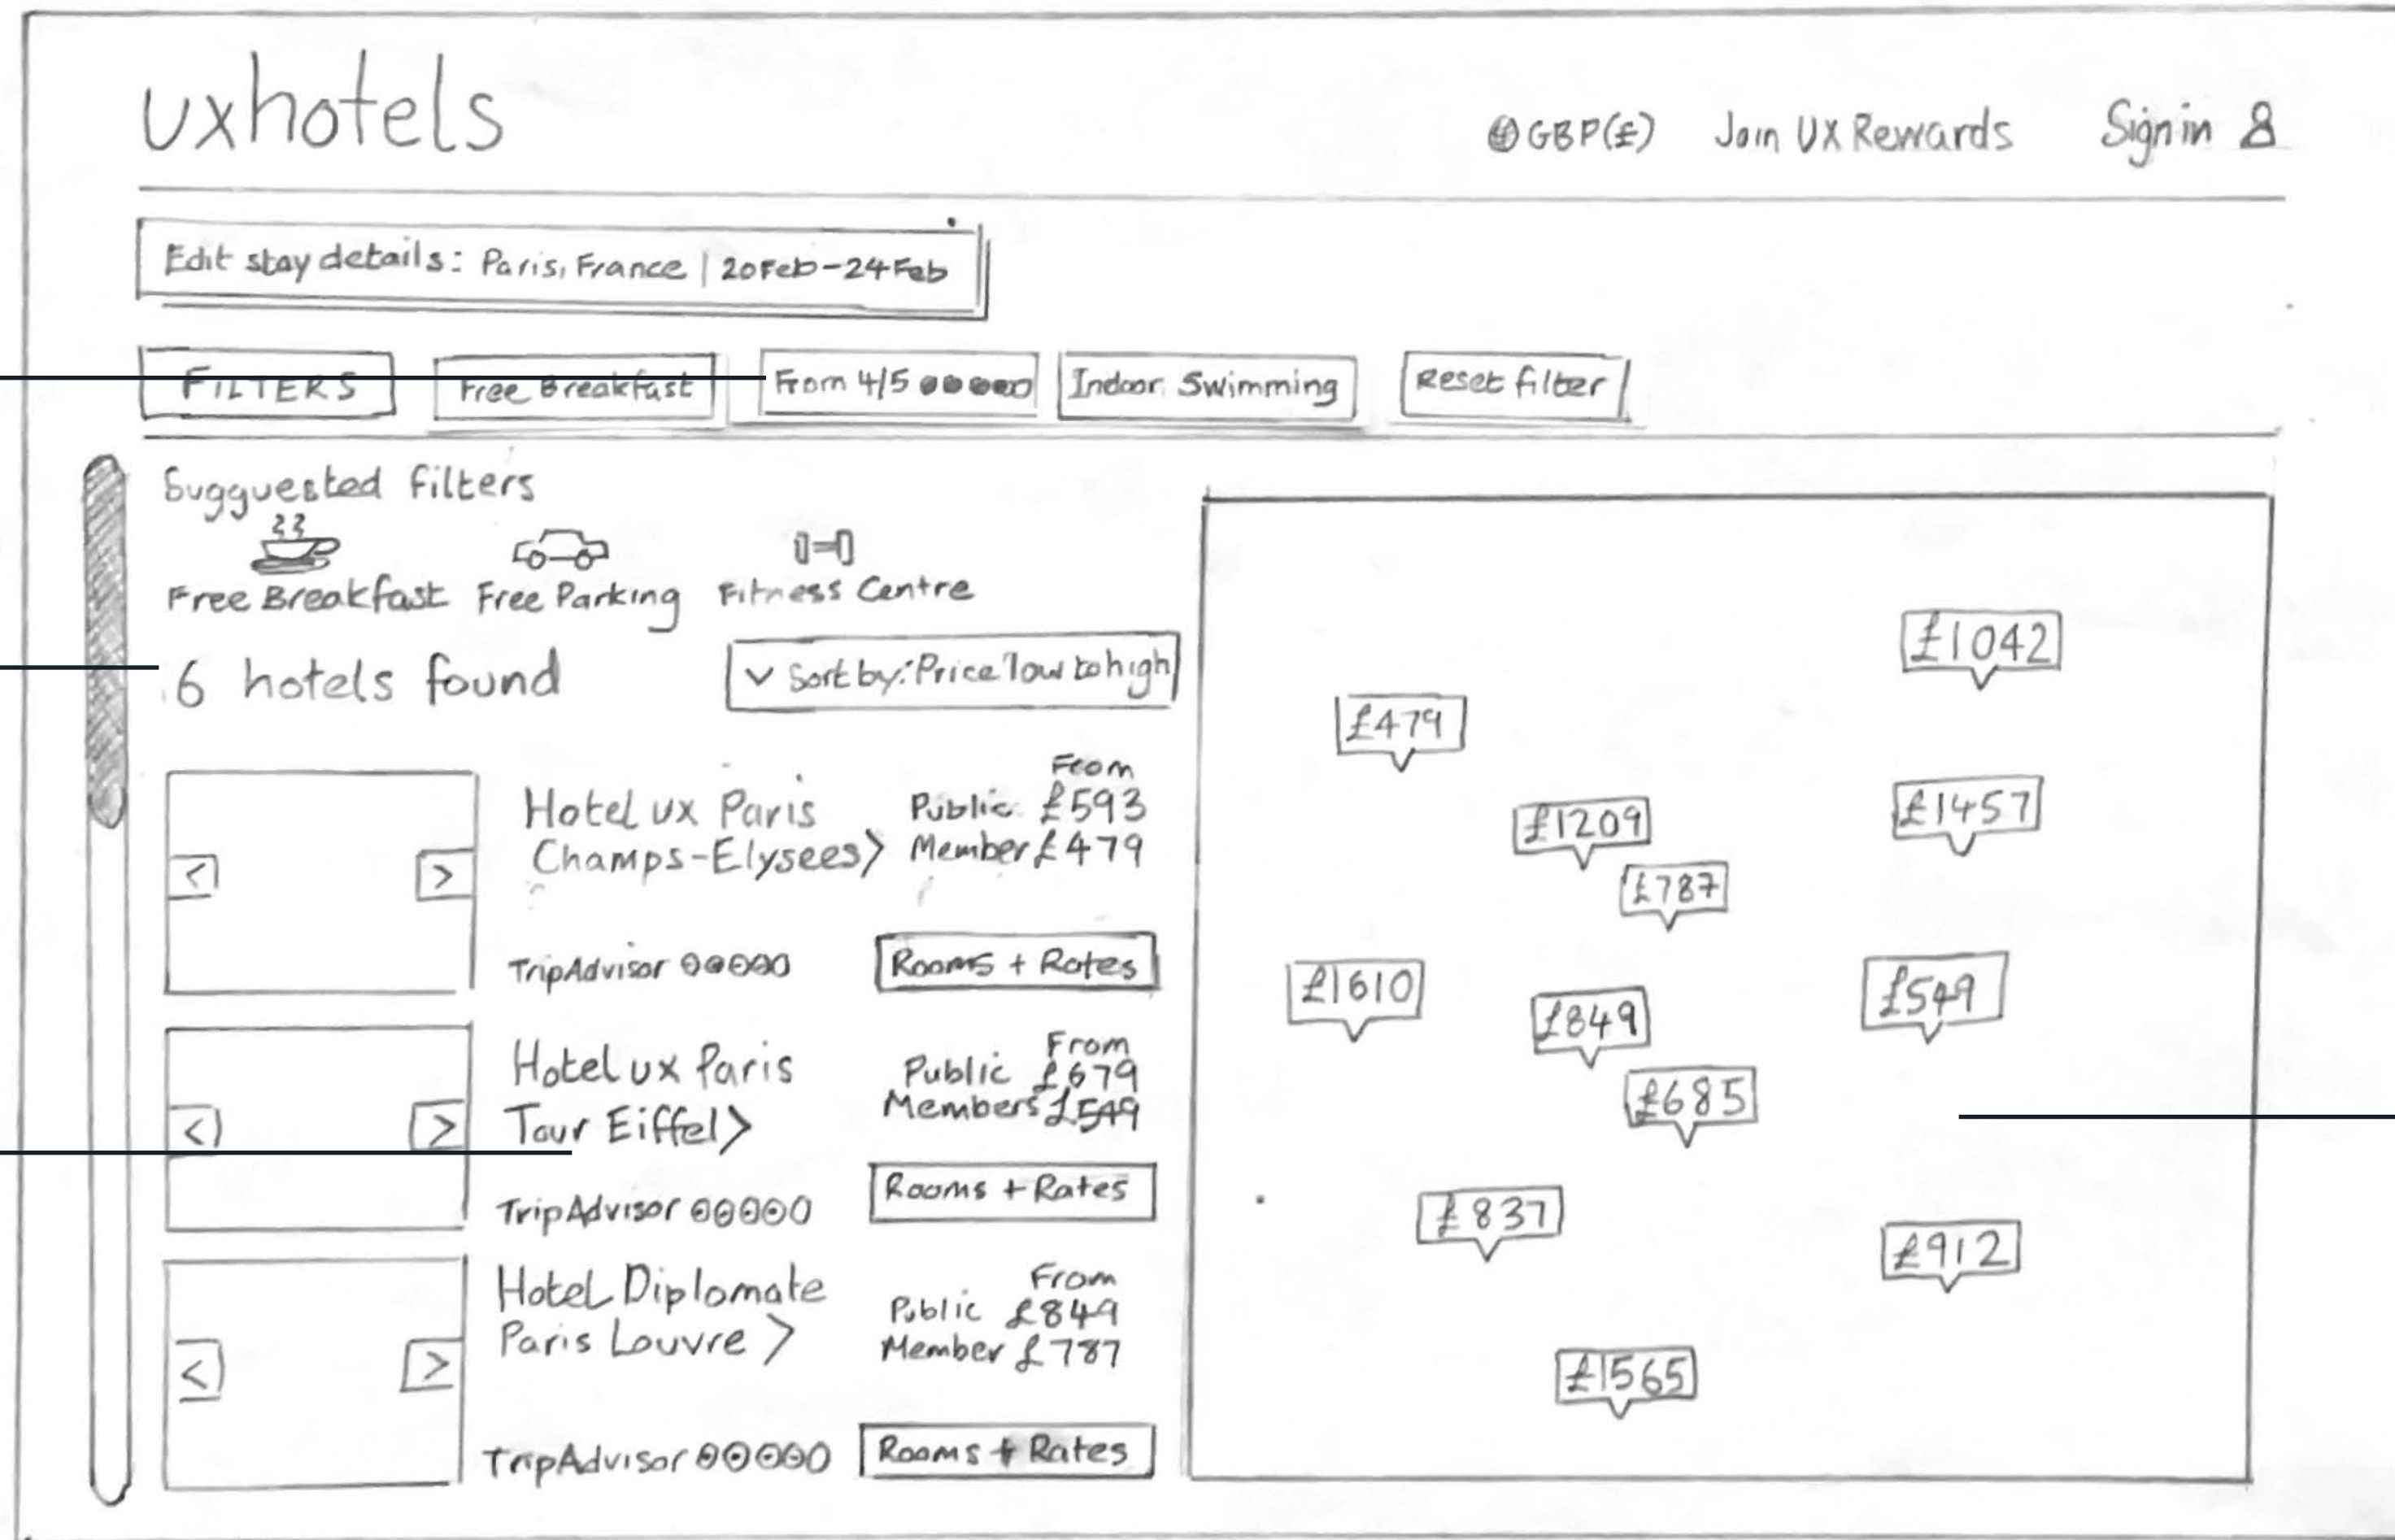 uxhotels
GBP(£) Join UX Rewards Sign in
Edit stay details: Paris, France | 20Feb-24Feb
FILTERS Free Breakfast From 4/5 Indoor Swimming Reset filter
Sugguested filters
Free Breakfast Free Parking Fitness Centre
6 hotels found
Sort by: Price low to high
From
Hotel ux Paris Public £593
Champs-Elysees> Member £479
TripAdvisor Rooms + Rates
From
Hotel ux Paris Public £679
Tour Eiffel> Members £549
TripAdvisor Rooms + Rates
From
Hotel Diplomate Public £849
Paris Louvre > Member £787
TripAdvisor Rooms + Rates
£1042
£479
£1457
£1209
£787
£1610
£849
£549
£685
£837
£912
£1565